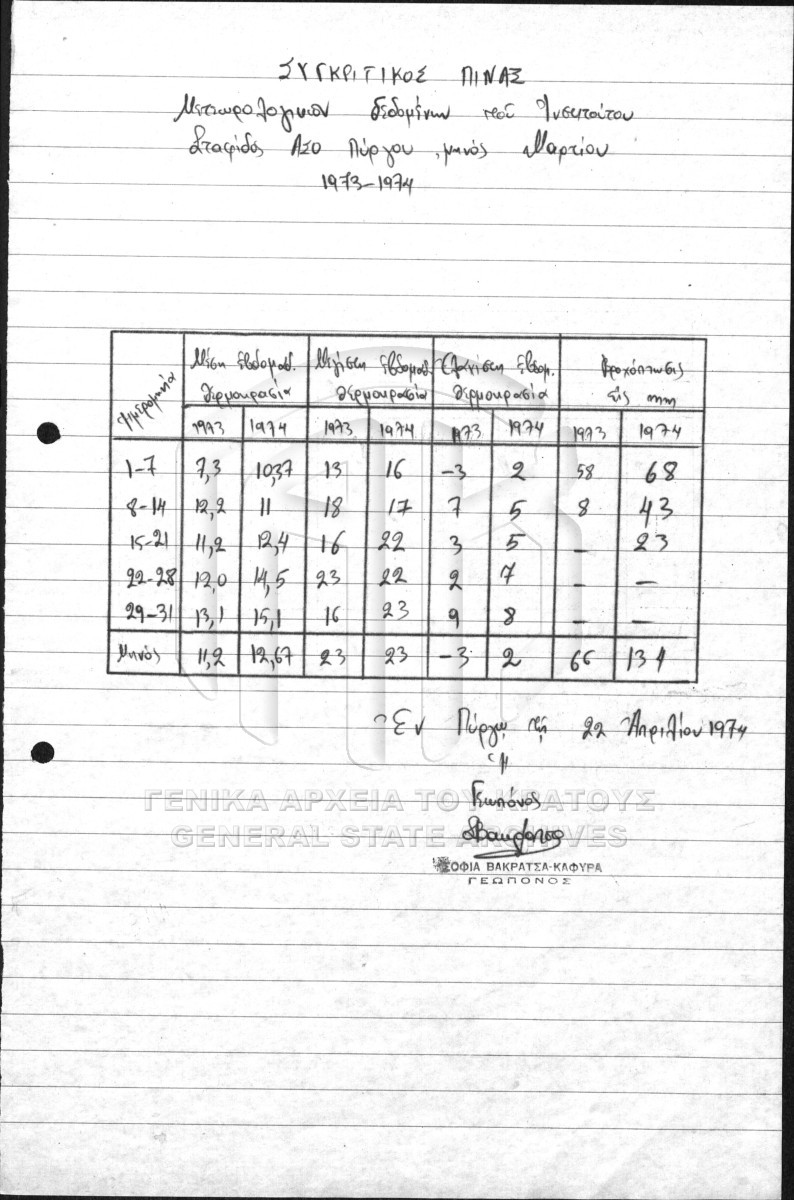 ΣΥΓΚΡΙΤΙΚΟΣ ΠΙΝΑΞ
Μετεωρολογικών δεδομένων τού Ἰνστιτούτου
Σταφίδος ΑΣΟ Πύργου, μηνός Μαρτίου
1973-1974
Ημερομηνία Μέση ἑβδομαδ. Μεγίστη ἑβδομαδ. Ελαχίστη ἑβδομ. Βροχόπτωσις
θερμοκρασία θερμοκρασία θερμοκρασία εἰς mm
1973 1974 1973 1974 1973 1974 1973 1974
1-7 7,3 10,37 13 16 -3 2 58 68
8-14 12,2 11 18 17 7 5 8 43
15-21 11,2 12,4 16 22 3 5 – 23
22-28 12,0 14,5 23 22 2 7 – –
29-31 13,1 15,1 16 23 9 8 – –
Μηνός 11,2 12,67 23 23 -3 2 66 134
Ἐν Πύργῳ τῇ 22 Ἀπριλίου 1974
Ἡ
Γεωπόνος
ΣΟΦΙΑ ΒΑΚΡΑΤΣΑ-ΚΑΦΥΡΑ
ΓΕΩΠΟΝΟΣ
ΓΕΝΙΚΑ ΑΡΧΕΙΑ ΤΟΥ ΚΡΑΤΟΥΣ
GENERAL STATE ARCHIVES